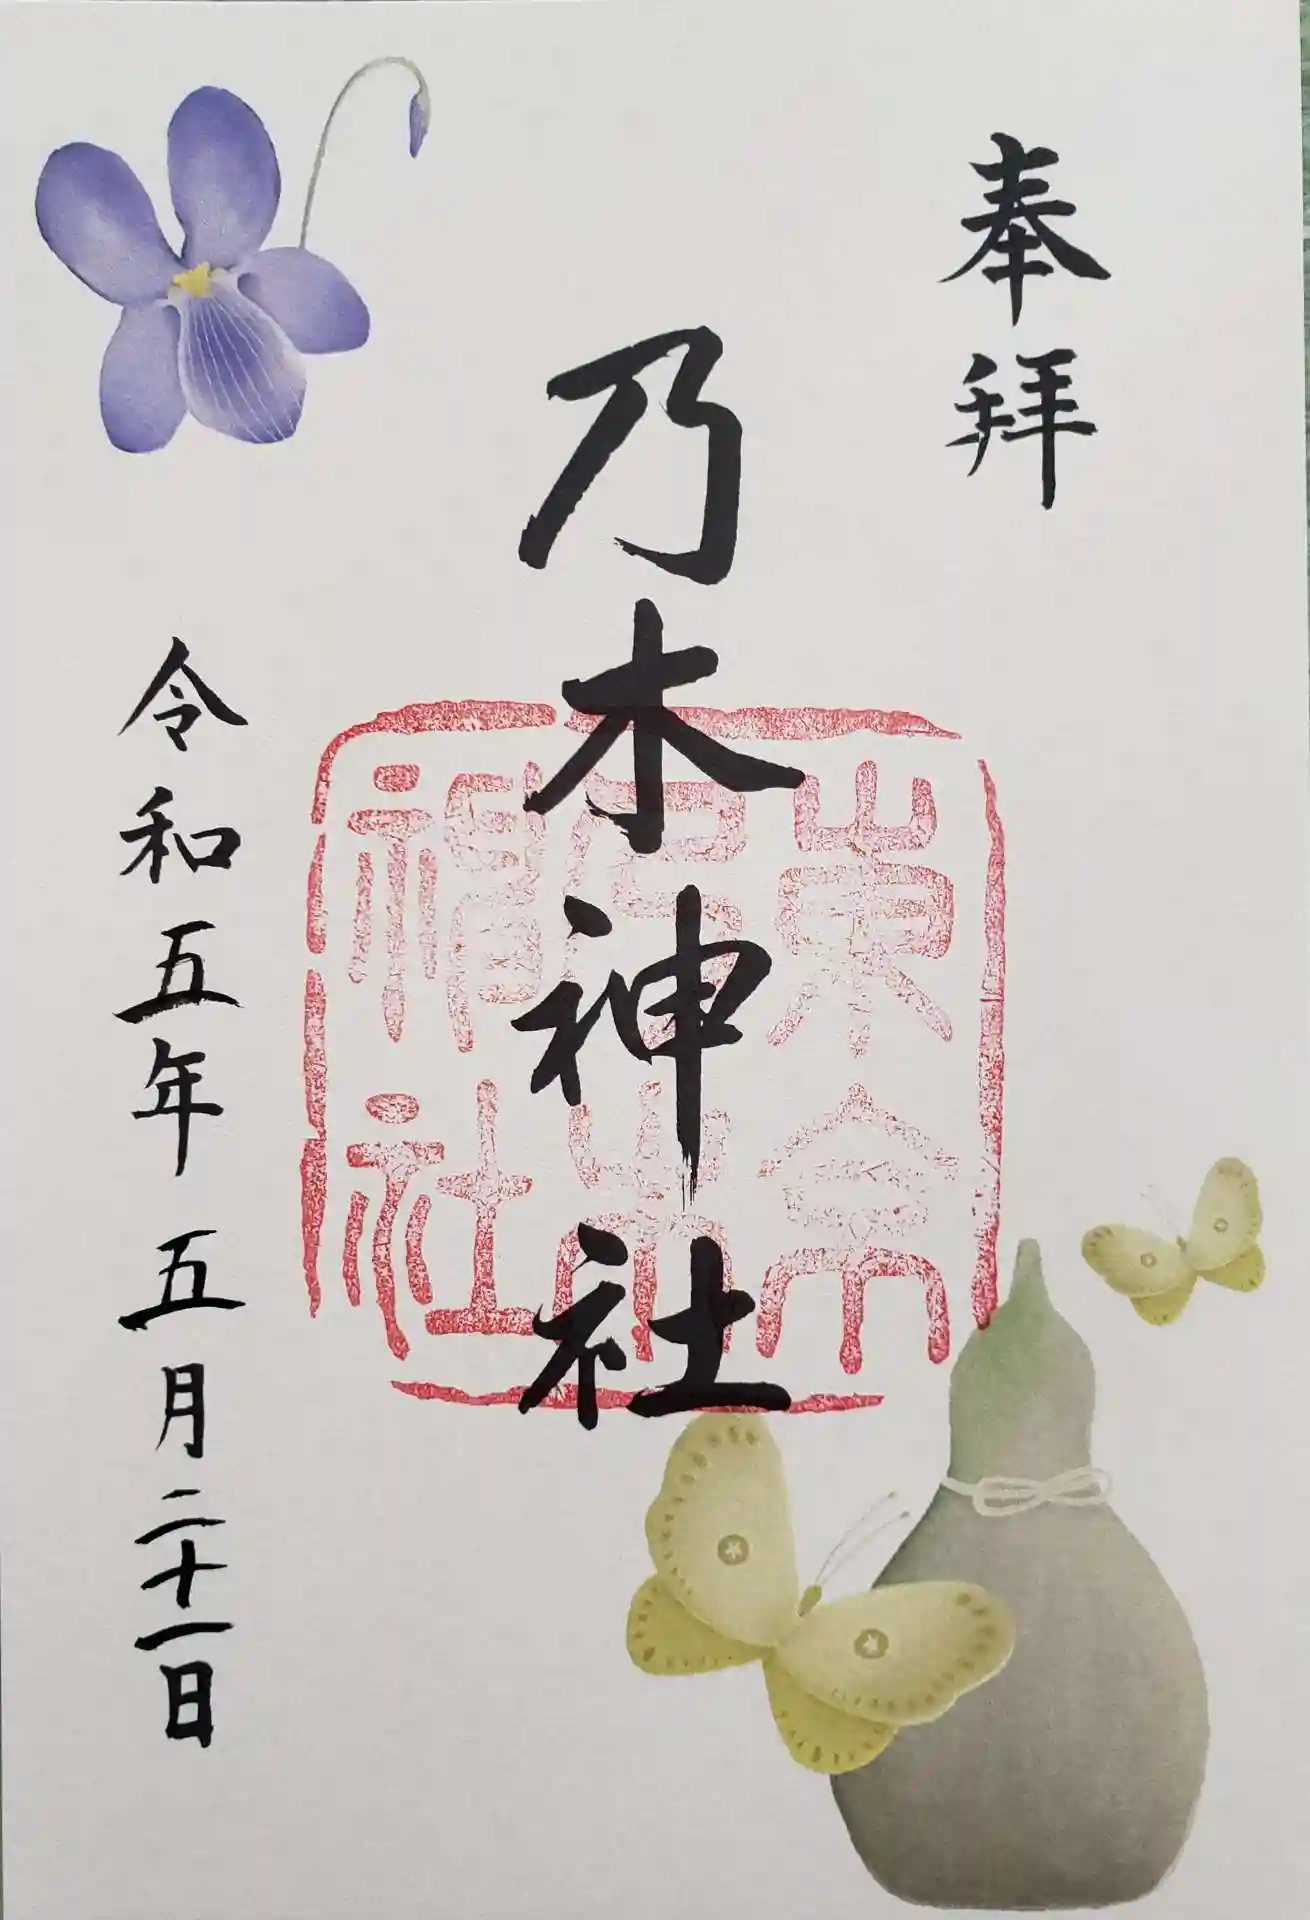 奉拝
乃木神社
東京
乃木
神社
令和五年五月二十一日